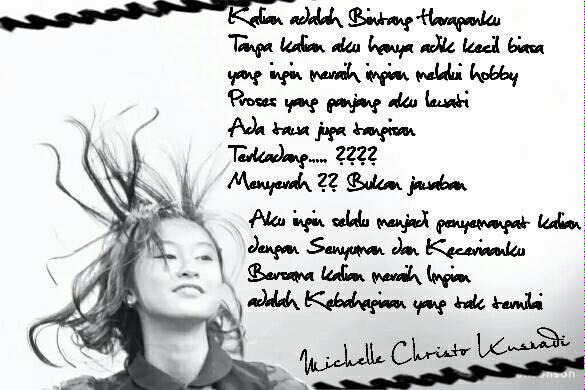 Kalian adalah Bintang Harapanku
Tanpa kalian aku hanya adik kecil biasa
yang ingin meraih impian melalui hobby
Proses yang panjang aku lewati
Ada tawa juga tangisan
Terkadang..... ????
Menyerah ?? Bukan jawaban
Aku ingin selalu menjadi penyemangat kalian
dengan Senyuman dan Keceriaanku
Bersama kalian meraih Impian
adalah Kebahagiaan yang tak ternilai
Michelle Christo Kusnadi